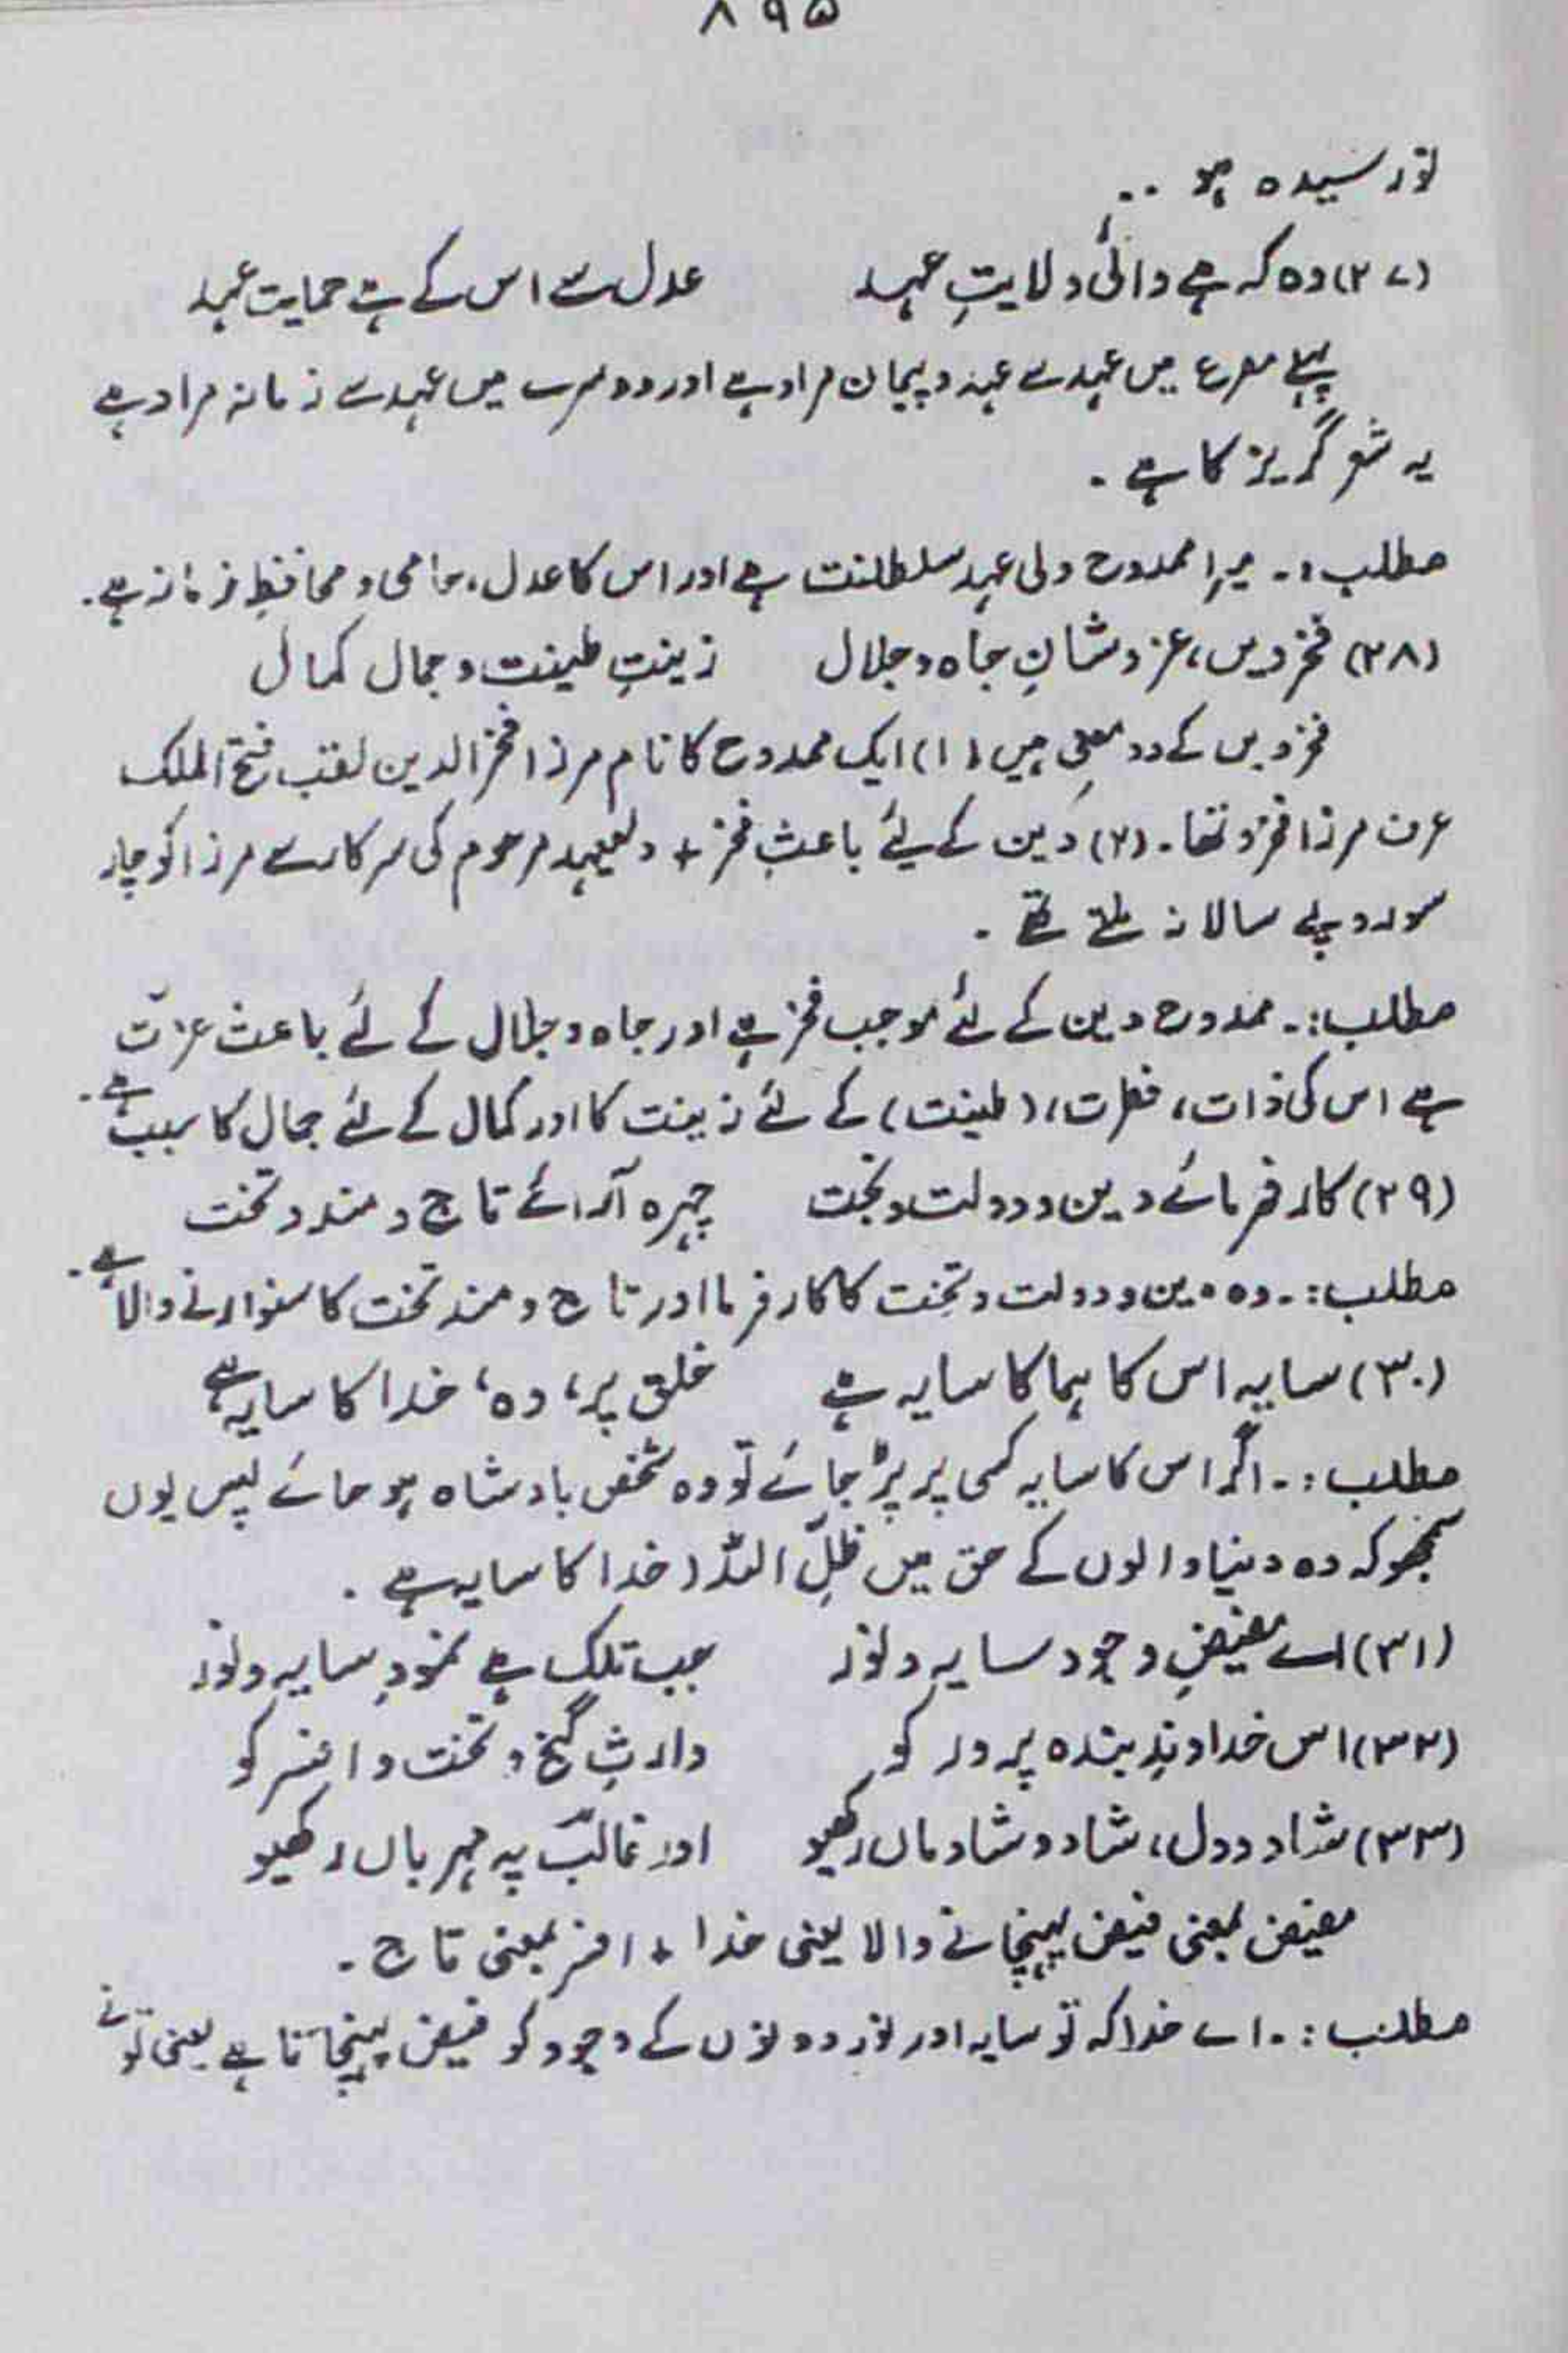 ۸۹۵
نورسیدہ ہو ..
(۲۷) وہ کہ ہے والئی ولایتِ عہد عدل سے اس کے ہے حمایت عہد
پہلے مصرع میں عہد سے عہد و پیمان مراد ہے اور دوسرے میں عہد سے زمانہ مراد ہے
یہ شعر گریز کا ہے ۔
مطلب :۔ میرا ممدوح ولی عہد سلطنت ہے اور اس کا عدل، حامی و محافظِ زمانہ ہے۔
(۲۸) فخرِ دیں، عز و شانِ جاہ و جلال زینتِ طینت و جمال کمال
فخر دیں کے دو معنی ہیں (۱) ایک ممدوح کا نام مرزا فخرالدین لقب فتح الملک
عرف مرزا فخرو تھا۔ (۲) دین کے لیے باعثِ فخر + ولیعہد مرحوم کی سرکار سے مرزا کو چار
سو روپے سالانہ ملتے تھے ۔
مطلب :۔ ممدوح دین کے لئے موجب فخر ہے اور جاہ و جلال کے لئے باعث عزّت
ہے اس کی ذات، فطرت، (طینت) کے لئے زینت کا اور کمال کے لئے جمال کا سبب ہے۔
(۲۹) کار فرمائے دین و دولت و بخت چہرہ آرائے تاج و مسند و تخت
مطلب :۔ وہ دین و دولت و تخت کا کار فرما اور تاج و مسند تخت کا سنوارنے والا ہے۔
(۳۰) سایہ اس کا ہما کا سایہ ہے خلق پر، وہ، خدا کا سایہ ہے
مطلب :۔ اگر اس کا سایہ کسی پر پڑ جائے تو وہ شخص بادشاہ ہو جائے پس یوں
سمجھو کہ وہ دنیا والوں کے حق میں ظلِّ اللہ (خدا کا سایہ ہے ۔
(۳۱) اے مفیضِ وجود سایہ و نور جب تلک ہے نمودِ سایہ و نور
(۳۲) اس خداوندِ بندہ پرور کو وارثِ گنج و تخت و افسر کو
(۳۳) شاد و دل، شاد و شادماں رکھیو اور غالبؔ پہ مہرباں رکھیو
مفیض بمعنی فیض پہنچانے والا یعنی خدا + افسر بمعنی تاج ۔
مطلب :۔ اے خدا کہ تو سایہ اور نور دونوں کے وجود کو فیض پہنچاتا ہے یعنی تو نے